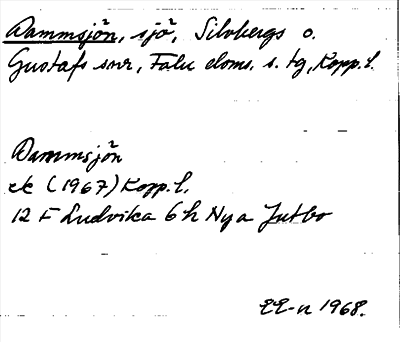 Dammsjön, sjö, Silvbergs o.
Gustafs snr, Falu doms. s. tg, Kopp. l.
Dammsjön
ek (1967) Kopp. l.
12 F Ludvika 6 h Nya Jutbo
EE-n 1968.